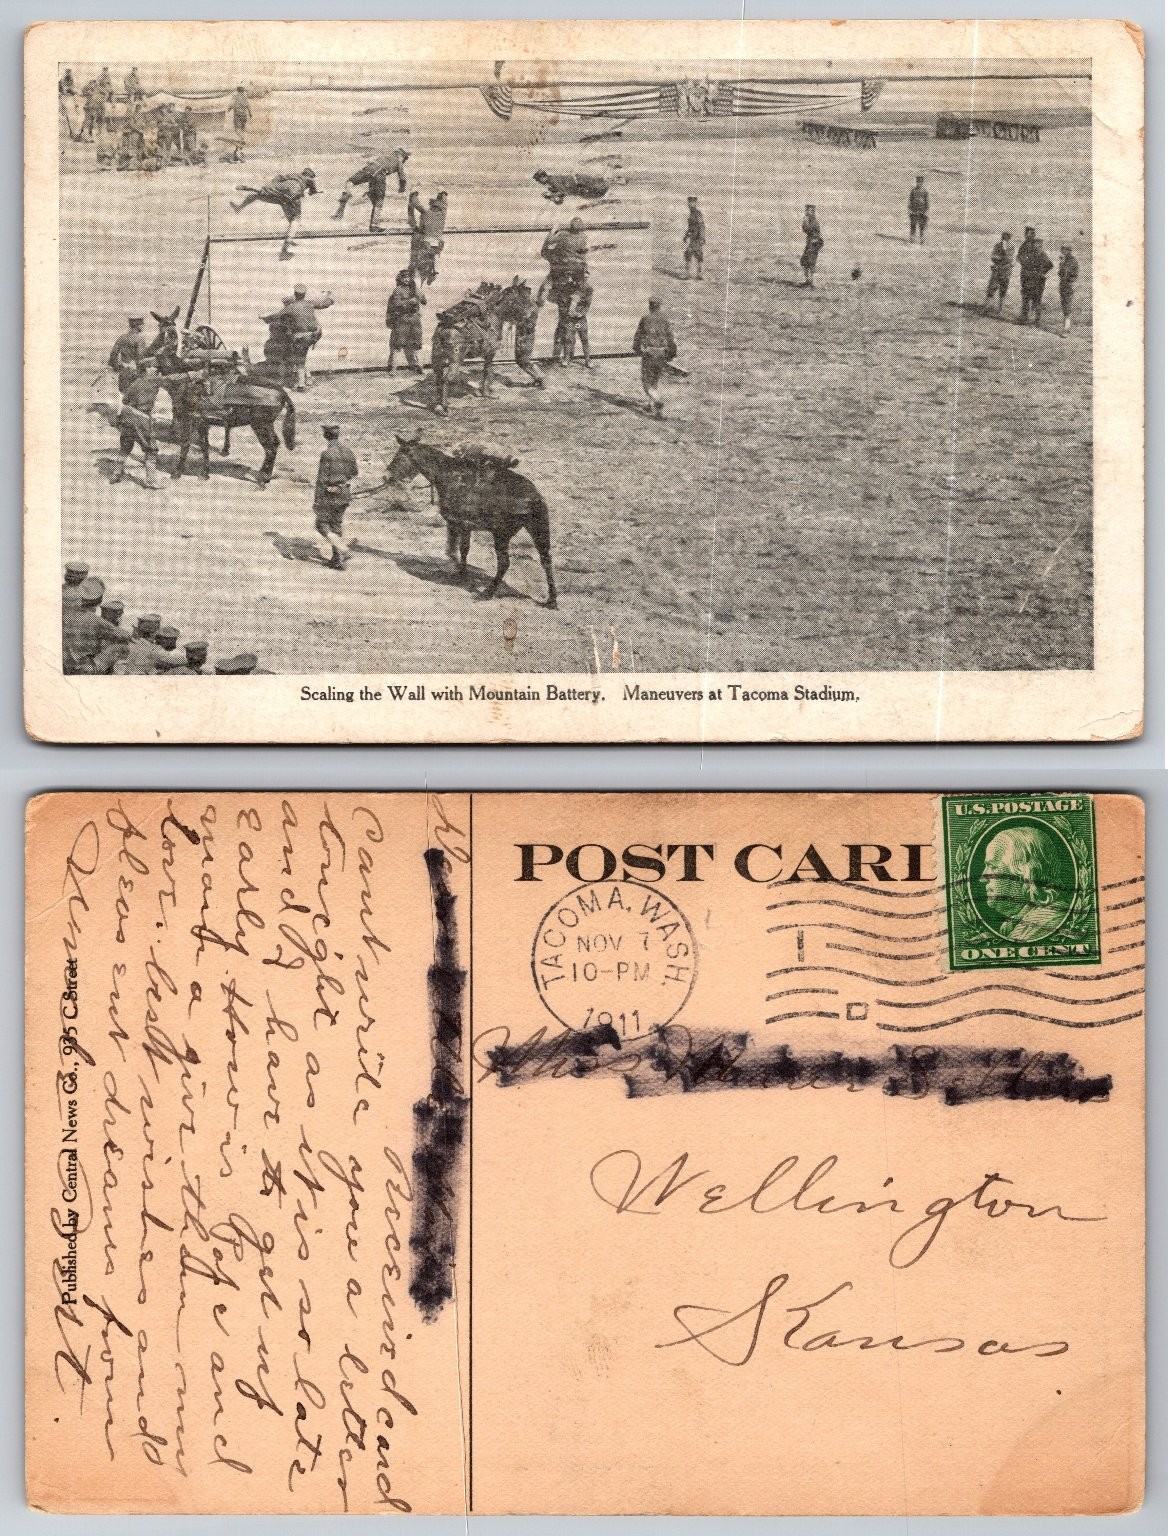 Scaling the Wall with Mountain Battery. Maneuvers at Tacoma Stadium.
POST CARD
U.S. POSTAGE
ONE CENT
TACOMA, WASH.
NOV 7
10-PM
1911
Miss
Wellington
Kansas
Received card
Cant write you a letter
tonight as it is so late
and I have to get up
Early. How is Pa and
ma give them my
love. best wishes and
pleasent dreams from
Published by Central News Co., 935 C Street